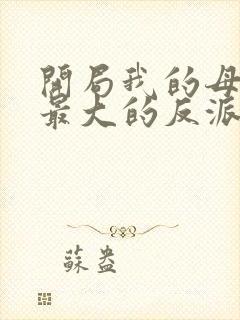 開局我的母
最大的反派
蘇盎